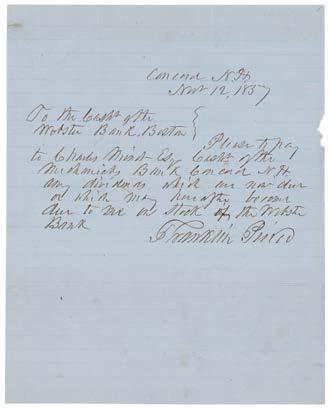 Concord N.H.
Nov 12, 1857
To the Cash^r of the
Webster Bank, Boston
Please to pay
to Charles Minot Esq Cash^r of the
Mechanicks Bank Concord N.H.
any dividends which are now due
or which may hereafter become
due to me on stock of the Webster
Bank
Franklin Pierce